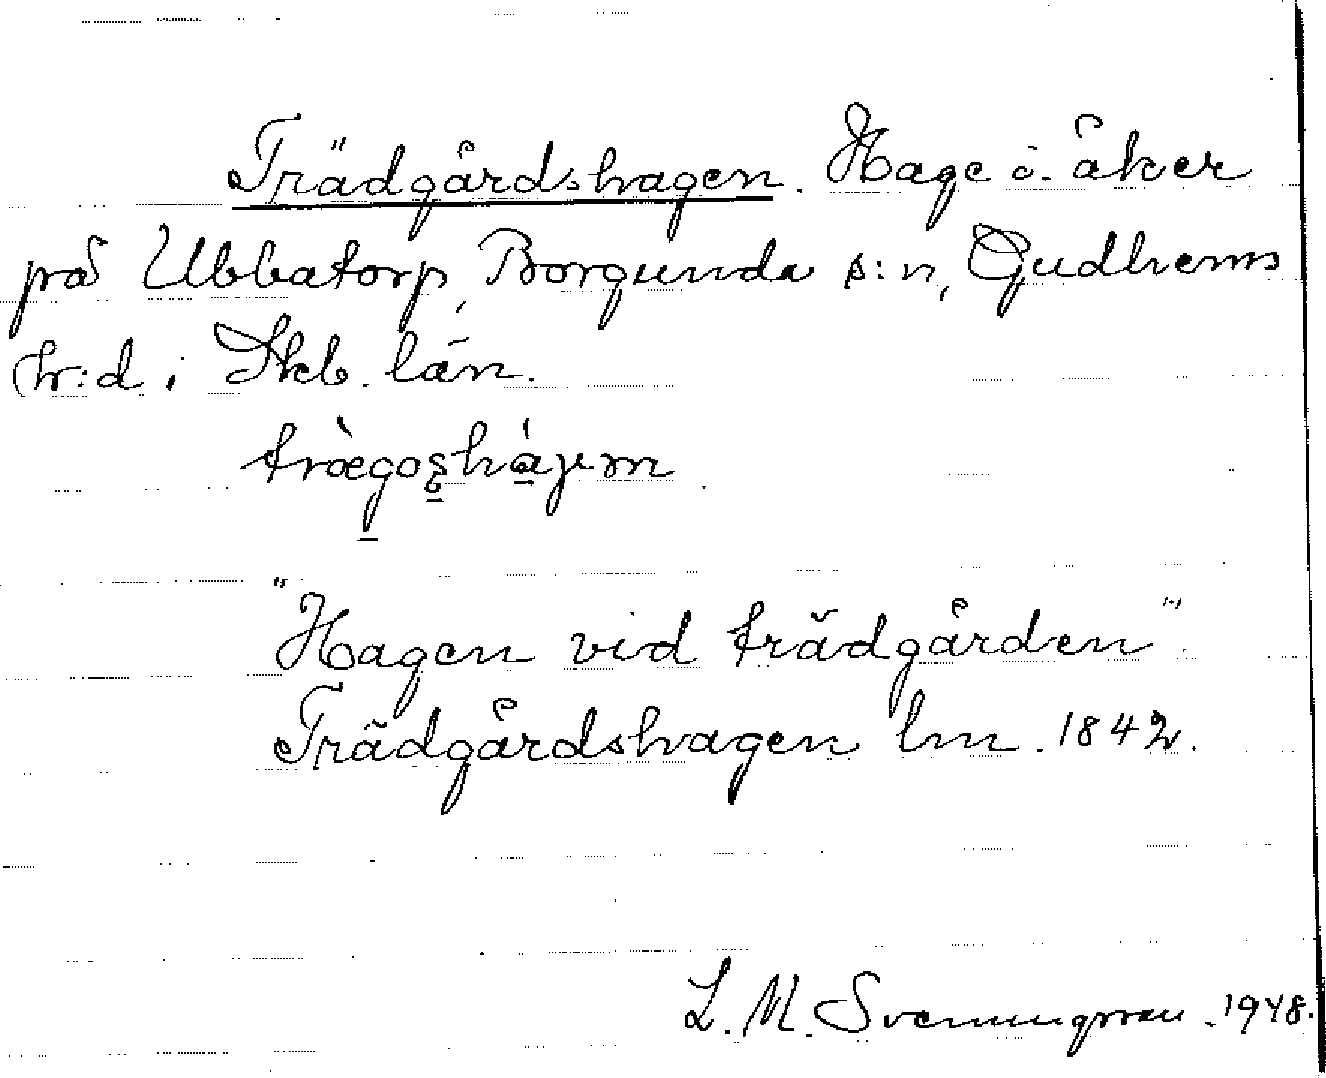 Trädgårdshagen. Hage o. åker
på Ubbatorp, Borgunda s:n, Gudhems
h:d i Skb. län.
"Hagen vid trädgården".
Trädgårdshagen lm. 1842.
L. M. Svenungsson. 1948.